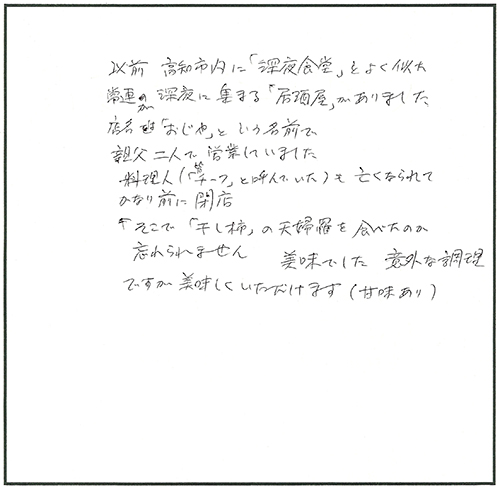 以前 高知市内に「深夜食堂」とよく似た
常連が深夜に集まる「居酒屋」がありました
店名は「おじや」という名前で
親父二人で営業していました
料理人(「チーフ」と呼んでいた)も亡くなられて
かなり前に閉店
そこで「干し柿」の天婦羅を食べたのが
忘れられません 美味でした 意外な調理
ですが美味しくいただけます(甘味あり)